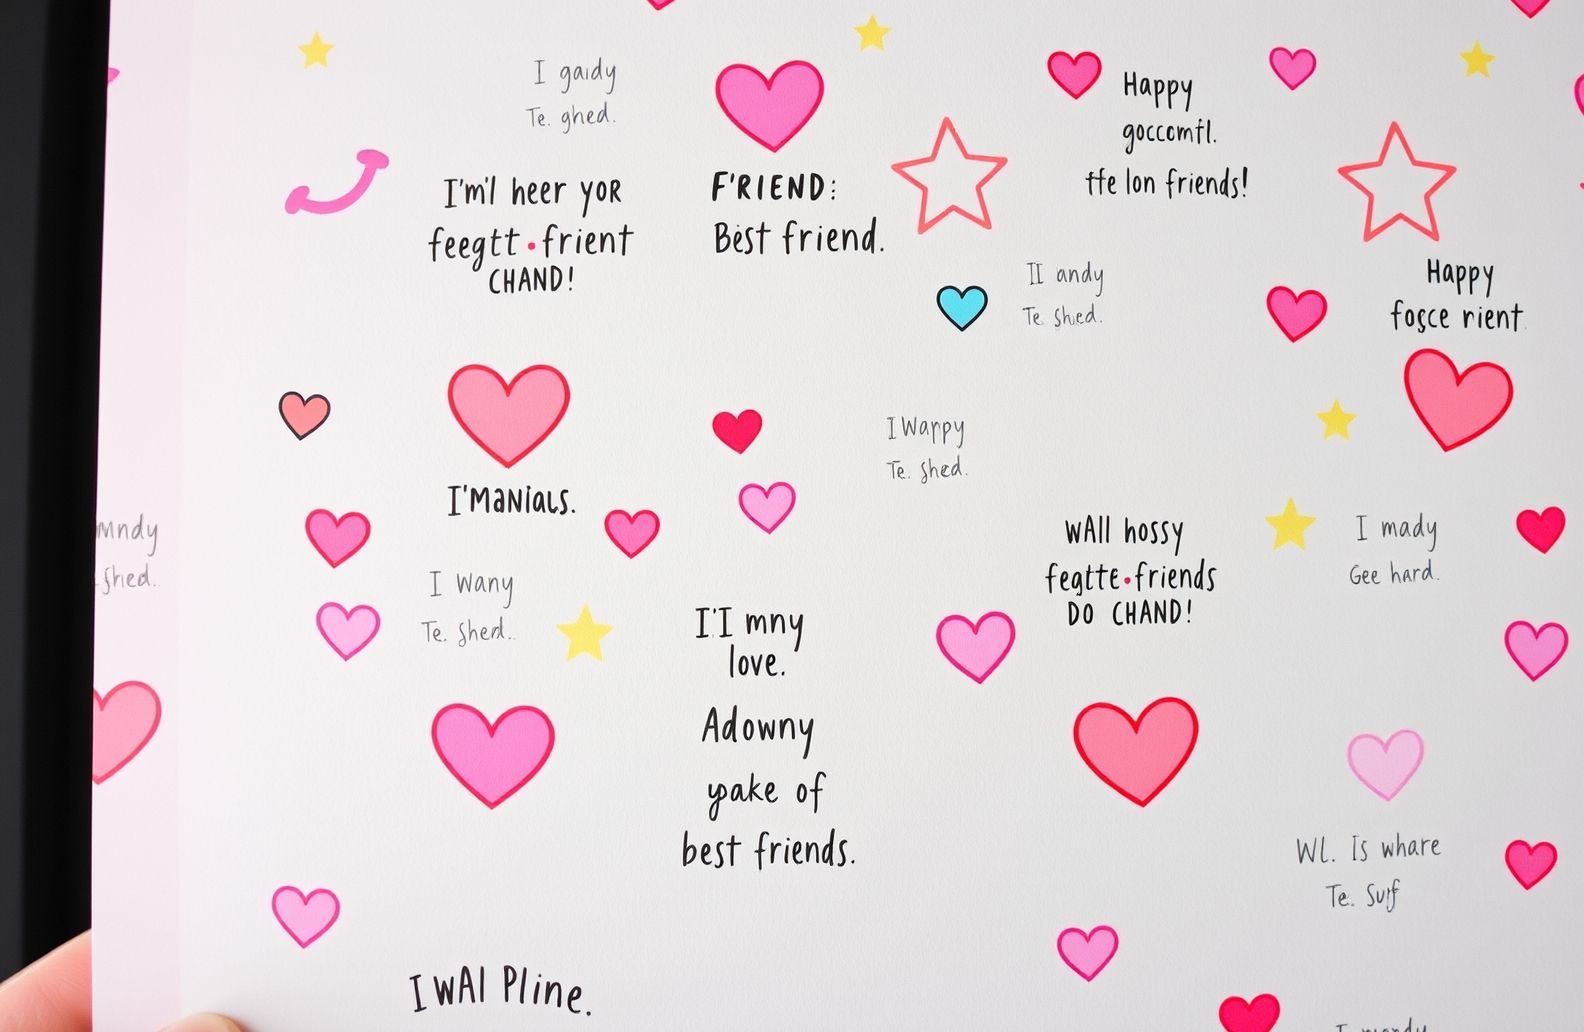 I gaıdy
Te. ghed.
I'm'l heer yoR
feegtt • frient
CHAND!
F'RIEND:
Best friend.
Happy
goccomfl.
tfe lon friends!
II andy
Te. Shed.
Happy
fosce rient
I'MaNiaLS.
I Warpy
Te. Shed.
mndy
Shed.
I Wany
Te. Shed..
I'I mny
love.
Adowny
yake of
best friends.
wAll hossy
fegtte•friends
DO CHAND!
I mady
Gee hard.
WL. Is whare
Te. Surf
I wAl Pline.